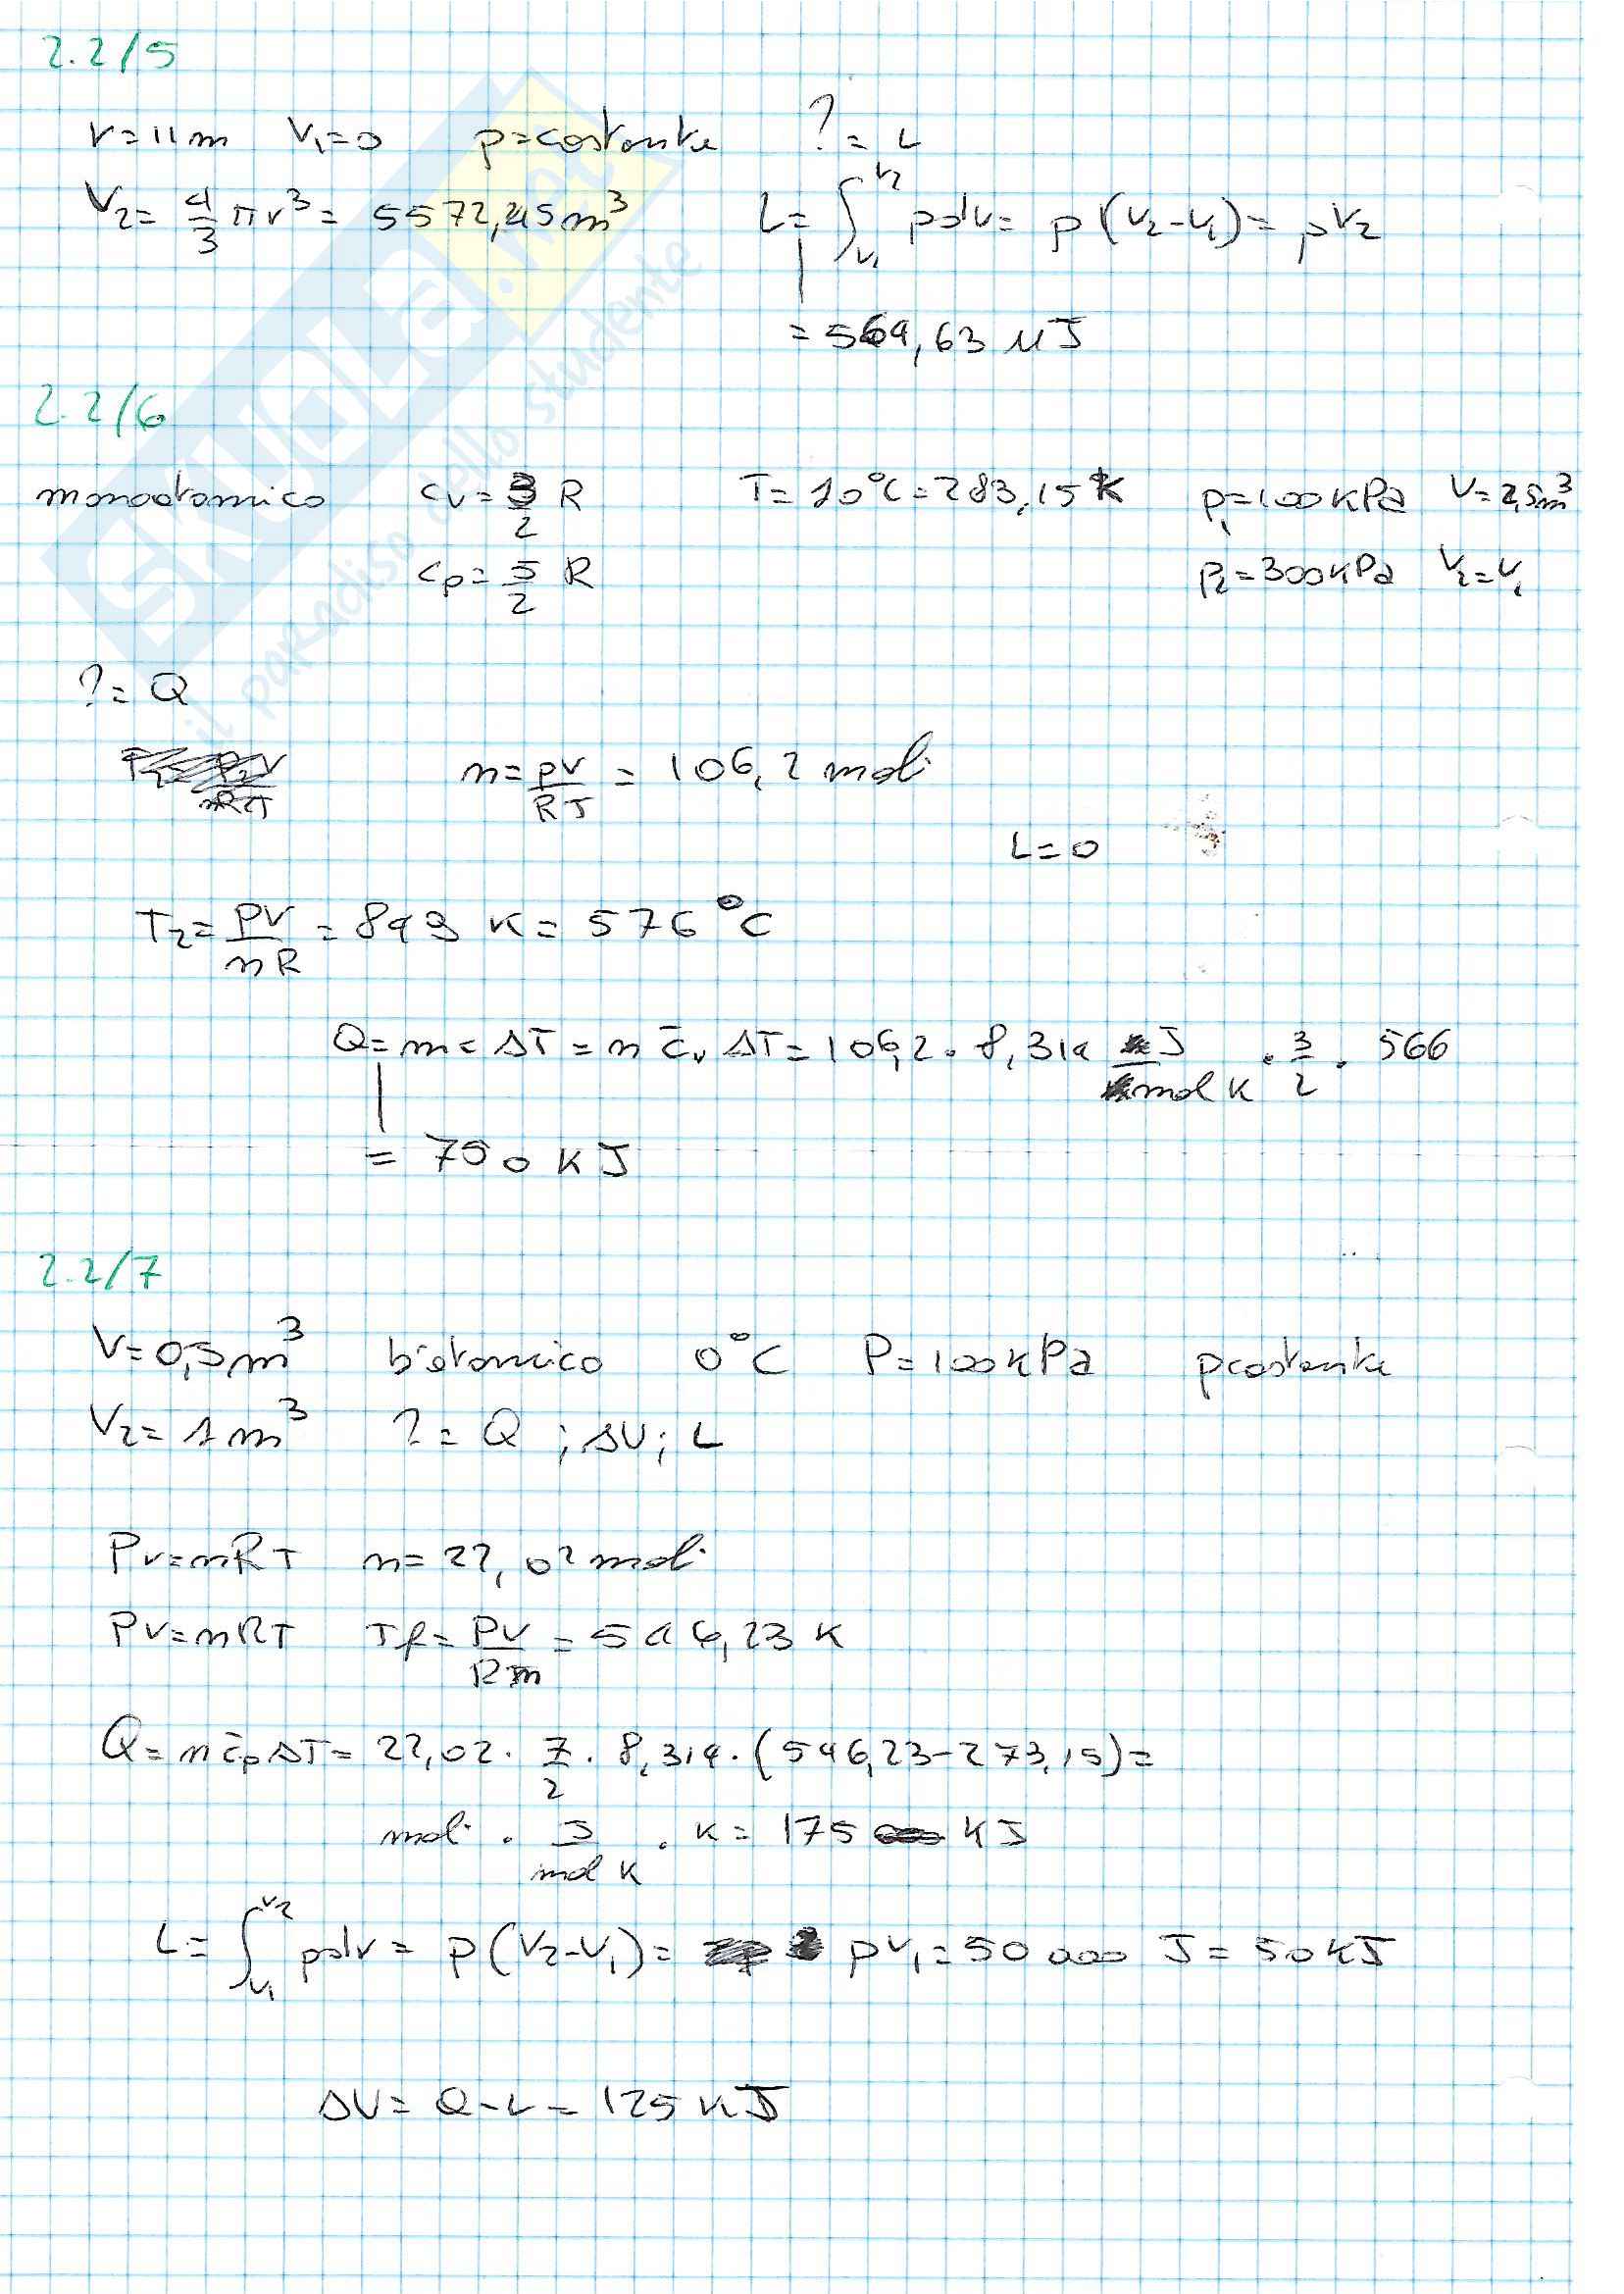 2.2/5
r=11m V₁=0 p=costante ?= L
V₂= 4/3 πr³= 5572,45m³ L= ∫_{V₁}^{V₂} pdV= p(V₂-V₁)= pV₂
= 564,63 MJ
2.2/6
monoatomico cv= 3/2 R T= 10°C=283,15K p₁=100kPa V=2,5m³
cp= 5/2 R p₂=300kPa V₂=V₁
?= Q
n= pV/RT = 106,2 moli
L=0
T₂= PV/nR = 849 K= 576°C
Q= mc ΔT= n c̄v ΔT= 106,2 · 8,314 J/mol K · 3/2 · 566
= 750 kJ
2.2/7
V=0,5m³ biatomico 0°C P=100kPa pcostante
V₂= 1m³ ?= Q ; ΔU; L
PV=nRT n= 22,02 moli
PV=nRT Tf= PV/Rn = 546,23 K
Q= n c̄p ΔT= 22,02 · 7/2 · 8,314 · (546,23-273,15)=
moli · J/mol K · K= 175 KJ
L= ∫_{V₁}^{V₂} pdV = p(V₂-V₁)= pV₁=50000 J= 50kJ
ΔU= Q-L= 125 kJ
SKUOLA.net
il paradiso dello studente